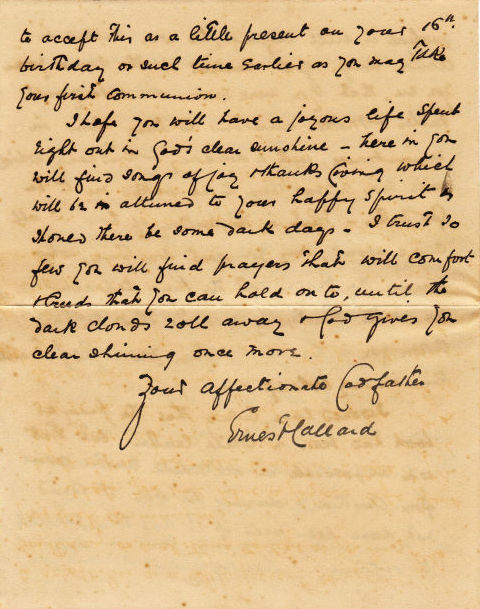 to accept this as a little present on your 16th.
birthday or such time earlier as you may take
your first communion.
I hope you will have a joyous life spent
right out in God's clear sunshine – here in you
will find songs of joy & thanks giving which
will be in attuned to your happy spirit &
should there be some dark days – I trust so
few you will find prayers that will comfort
& creeds that you can hold on to, until the
dark clouds roll away & God gives you
clear shining once more.
Your affectionate Godfather
Ernest Hallard